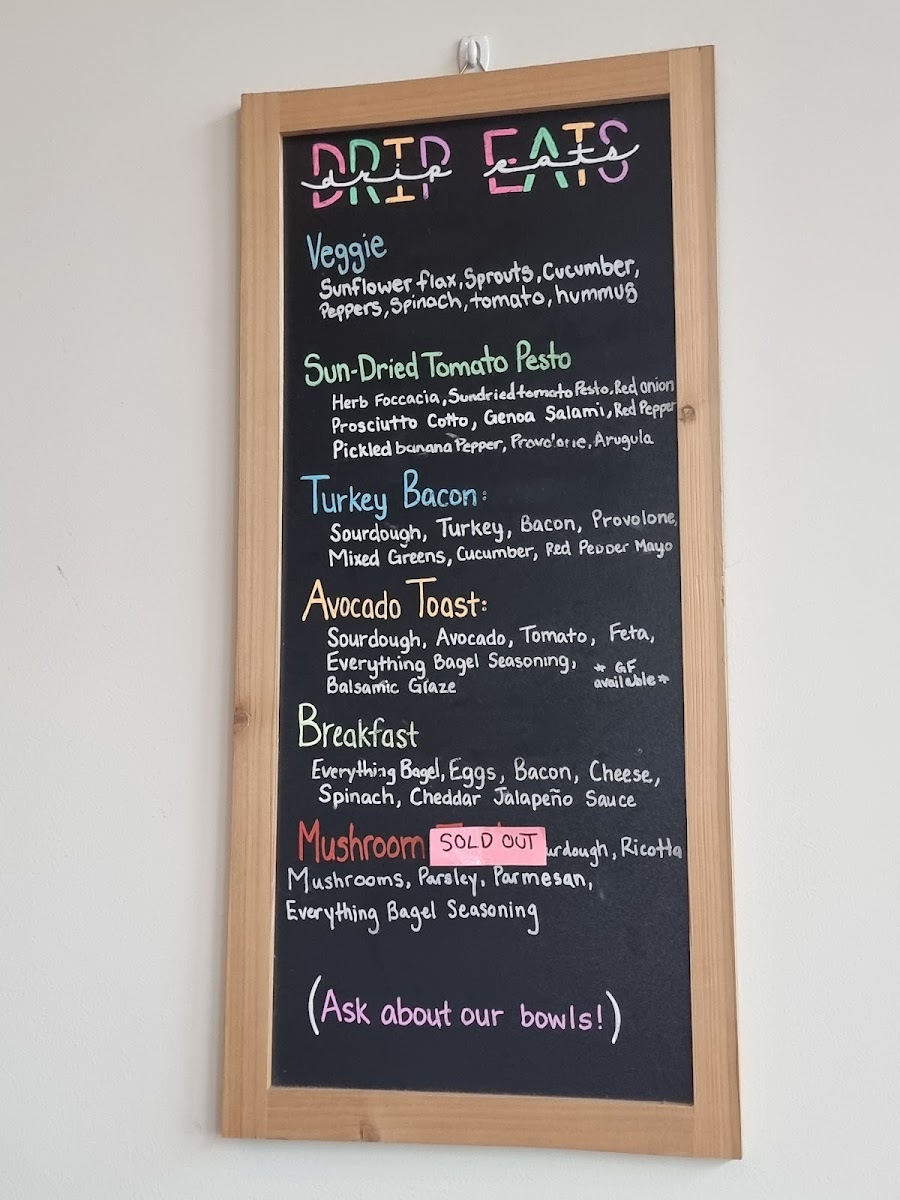 DRIP EATS
drip eats
Veggie
Sunflower flax, Sprouts, Cucumber,
Peppers, Spinach, tomato, hummus
Sun-Dried Tomato Pesto
Herb Foccacia, Sundried tomato Pesto, Red onion
Prosciutto Cotto, Genoa Salami, Red Pepper
Pickled banana Pepper, Provolone, Arugula
Turkey Bacon:
Sourdough, Turkey, Bacon, Provolone,
Mixed Greens, Cucumber, Red Pepper Mayo
Avocado Toast:
Sourdough, Avocado, Tomato, Feta,
Everything Bagel Seasoning,
Balsamic Glaze
* GF
available *
Breakfast
Everything Bagel, Eggs, Bacon, Cheese,
Spinach, Cheddar Jalapeño Sauce
Mushroom SOLD OUT urdough, Ricotta
Mushrooms, Parsley, Parmesan,
Everything Bagel Seasoning
(Ask about our bowls!)